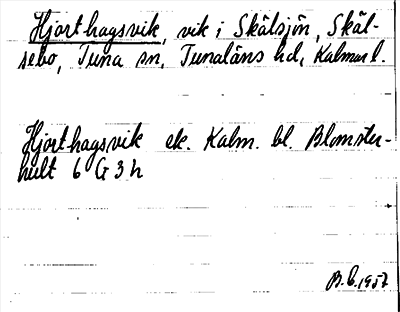 Hjorthagsvik, vik i Skälsjön, Skäl-
sebo, Tuna sn, Tunaläns hd, Kalmar l.
Hjorthagsvik ek. Kalm. bl. Blomster-
hult 6 G 3 h
B.C. 1957